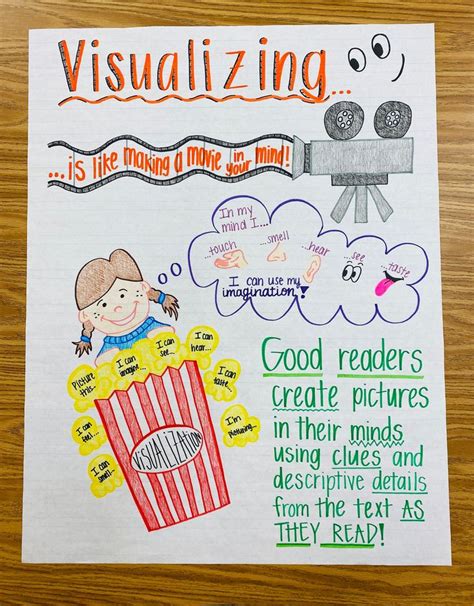 Visualizing...
...is like making a movie in your mind!
In my
mind I...
...touch
...smell
...hear
...see
...taste
I can use my
imagination!
Picture
this...
I can
imagine...
I can
see...
I can
hear...
I can
taste...
I can
feel...
I'm
picturing...
I can
smell...
VISUALIZATION
Good readers
create pictures
in their minds
using clues and
descriptive details
from the text AS
THEY READ!